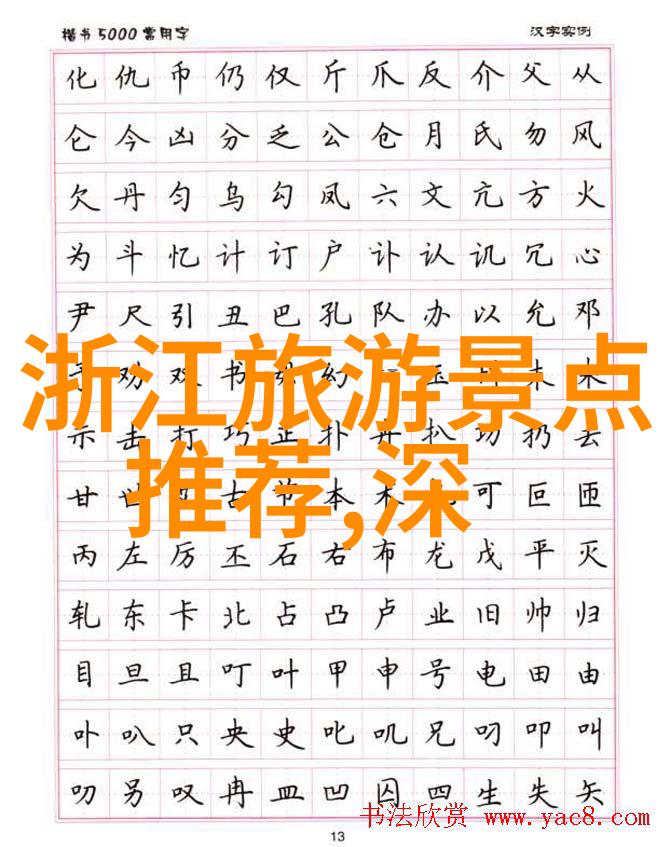 楷书5000常用字
汉字实例
化仇币仍仅斤爪反介父从
仑今凶分乏公仓月氏勿风
欠丹匀乌勾凤六文亢方火
为斗忆计订户讣认讥冗心
尹尺引丑巴孔队办以允邓
劝双书幻未末
浙江旅游景点
示击打巧正扑卉扒功扔去
甘世古节本术可叵匝
推荐,深
丙左厉丕石右布龙戊平灭
轧东卡北占凸卢业旧帅归
目旦且叮叶甲申号电田由
卟叭只央史叱叽兄叼叩叫
叨另叹冉皿凹囚四生失矢
书法欣赏 www.yac8.com
13